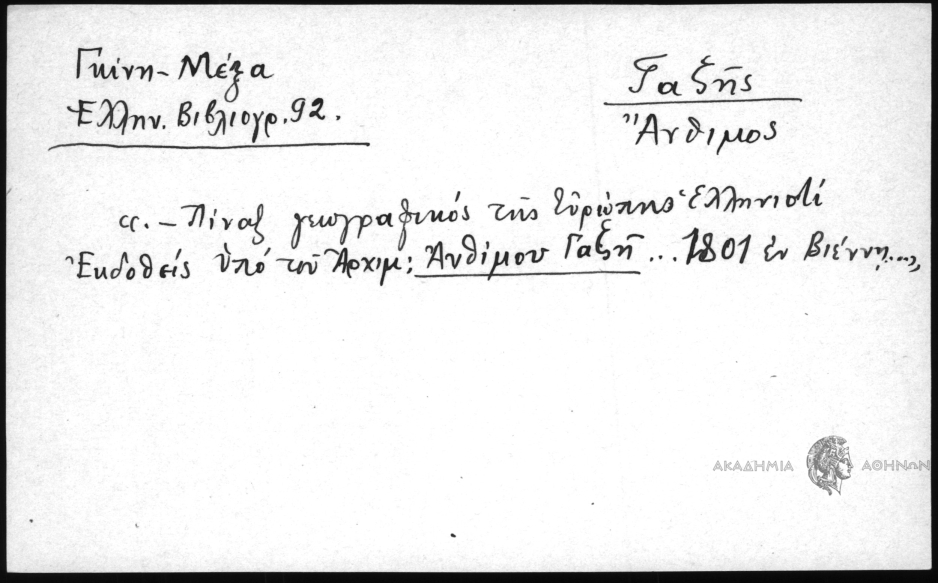 Γκίνη - Μέξα
Ἑλλην. Βιβλιογρ. 92.
Γαζῆς
Ἄνθιμος
«. - Πίναξ γεωγραφικός τῆς Εὐρώπης Ἑλληνιστί
Ἐκδοθείς ὑπό τοῦ Ἀρχιμ: Ἀνθίμου Γαζῆ ... 1801 ἐν Βιέννῃ....,
ΑΚΑΔΗΜΙΑ ΑΘΗΝΩΝ